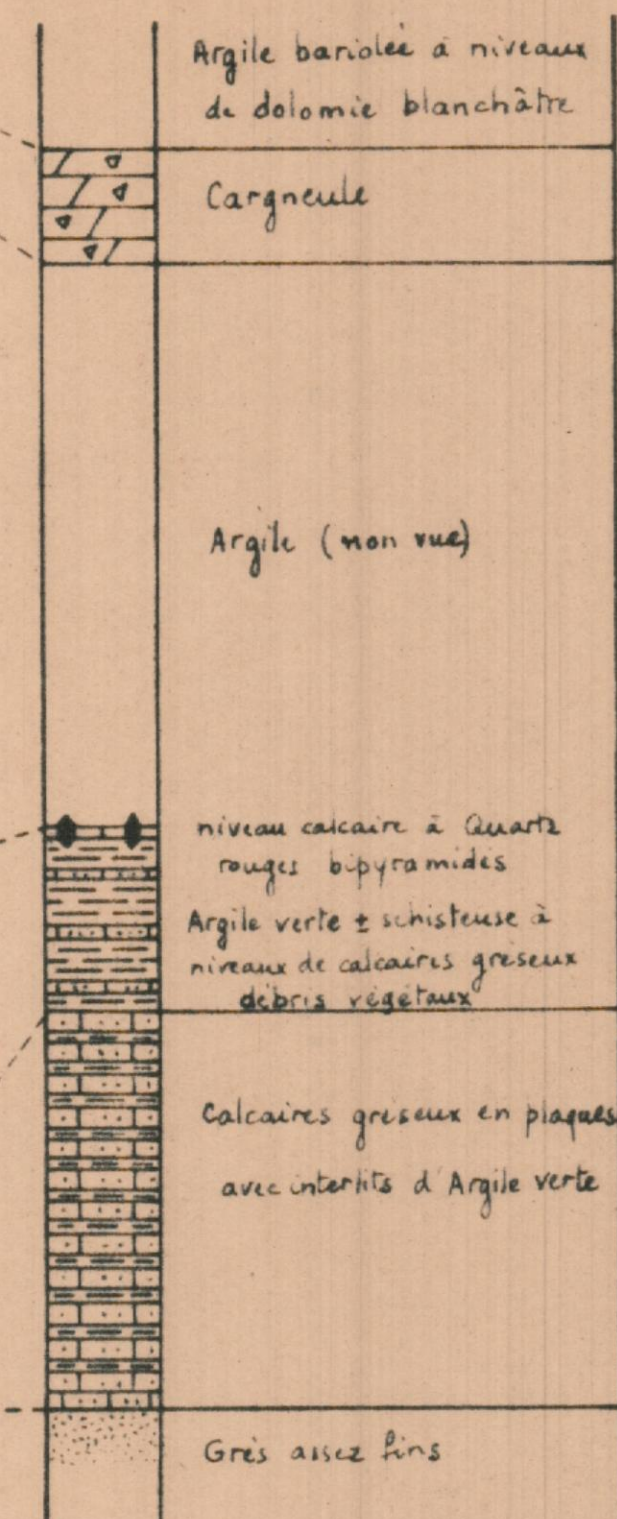 Argile bariolée à niveaux
de dolomie blanchâtre
Cargneule
Argile (non vue)
niveau calcaire à Quartz
rouges bipyramidés
Argile verte ± schisteuse à
niveaux de calcaires gréseux
débris végétaux
Calcaires gréseux en plaques
avec interlits d'Argile verte
Grès assez fins